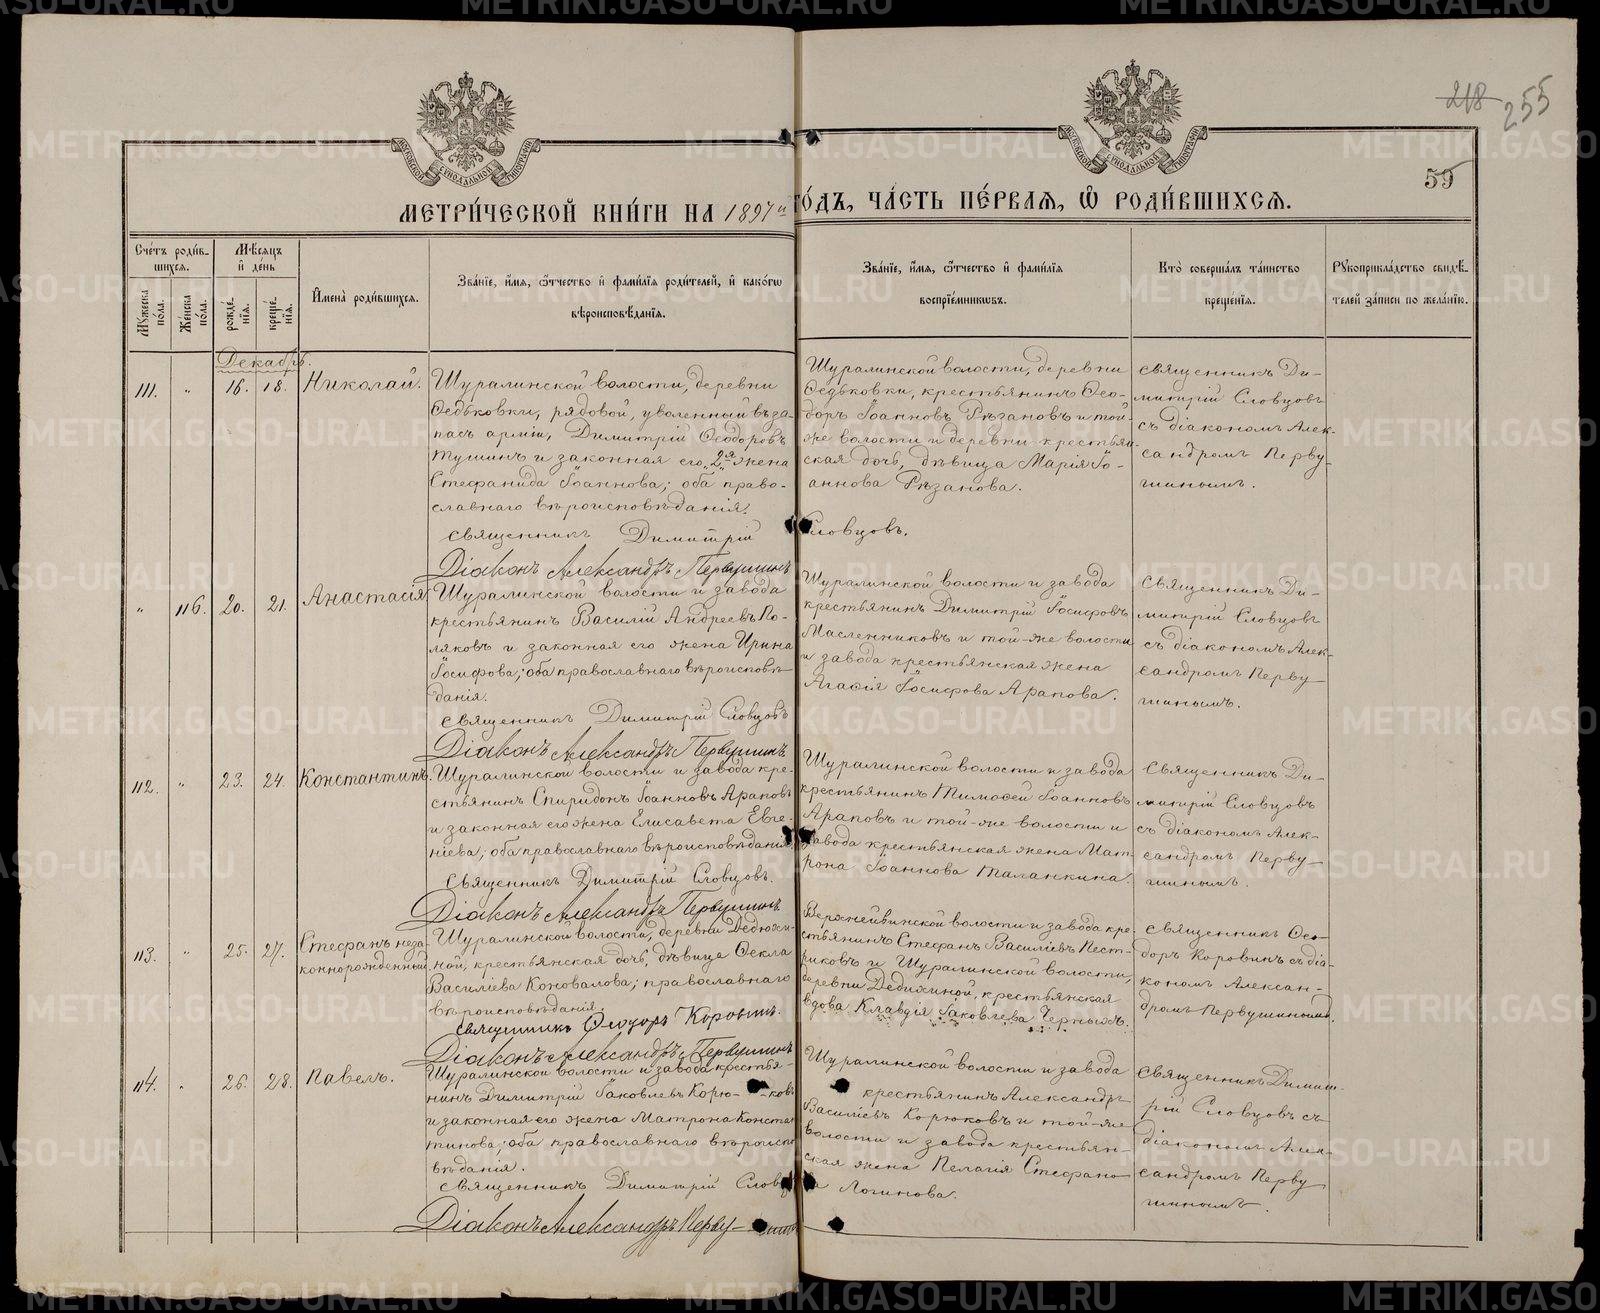 218 255
59
МЕТРИ́ЧЕСКОЙ КНИ́ГИ НА 1897 й ГО́ДЪ, ЧА́СТЬ ПЕ́РВАЯ, Ѡ РОДИ́ВШИХСЯ.
Сче́тъ роди́в-
шихся.
Мꙋ́жеска по́ла.
Же́нска по́ла.
Мѣ́сяцъ и де́нь
рожде́-
нїя.
креще́-
нїя.
Имена̀ роди́вшихся.
Зва́нїе, и́мя, ѻ́тчество и фами́лїя роди́телей, и како́гѡ
вѣроисповѣ́данїя.
Зва́нїе, и́мя, ѻ́тчество и фами́лїя
воспрїе́мниковъ.
Кто̀ соверша́лъ та́инство
креще́нїя.
Рꙋкоприкла́дство свидѣ́-
телей за́писи по жела́нїю.
Декабрь.
111. „ 16. 18. Николай.
Шуралинской волости, деревни
Ѳедьковки, рядовой, уволенный въ за-
пасъ арміи, Димитрій Ѳеодоровъ
Тушинъ и законная его „2я“ жена
Стефанида Іоаннова; оба право-
славнаго вѣроисповѣданія.
Священникъ Димитрій Словцовъ.
Діаконъ Александръ Первушинъ
Шуралинской волости, деревни
Ѳедьковки, крестьянинъ Ѳео-
доръ Іоанновъ Рѣзановъ и той-
же волости и деревни крестьян-
ская дочь, дѣвица Марія Іо-
аннова Рѣзанова.
Священникъ Ди-
митрій Словцовъ
съ діакономъ Алек-
сандромъ Перву-
шинымъ.
„ 116. 20. 21. Анастасія
Шуралинской волости и завода
крестьянинъ Василій Андреевъ По-
ляковъ и законная его жена Ирина
Іосифова; оба православнаго вѣроисповѣ-
данія.
Священникъ Димитрій Словцовъ
Діаконъ Александръ Первушинъ
Шуралинской волости и завода
крестьянинъ Димитрій Іосифовъ
Масленниковъ и той-же волости
и завода крестьянская жена
Агафія Іосифова Арапова.
Священникъ Ди-
митрій Словцовъ
съ діакономъ Алек-
сандромъ Перву-
шинымъ.
112. „ 23. 24. Константинъ.
Шуралинской волости и завода кре-
стьянинъ Спиридонъ Іоанновъ Араповъ
и законная его жена Елисавета Евге-
ніева; оба православнаго вѣроисповѣданія
Священникъ Димитрій Словцовъ.
Діаконъ Александръ Первушинъ
Шуралинской волости и завода
крестьянинъ Тимофей Іоанновъ
Араповъ и той-же волости и
завода крестьянская жена Мат-
рона Іоаннова Таланкина.
Священникъ Ди-
митрій Словцовъ
съ діакономъ Алек-
сандромъ Перву-
шинымъ.
113. „ 25. 27. Стефанъ неза-
коннорожденный.
Шуралинской волости, деревни Дедюхи-
ной, крестьянская дочь, дѣвица Ѳекла
Василіева Коновалова; православнаго
вѣроисповѣданія
Священникъ Ѳеодоръ Коровинъ.
Діаконъ Александръ Первушинъ
Верхнейвинской волости и завода кре-
стьянинъ Стефанъ Василіевъ Пест-
риковъ и Шуралинской волости,
деревни Дедюхиной, крестьянская
вдова Клавдія Іаковлева Черныхъ.
Священникъ Ѳео-
доръ Коровинъ съ діа-
кономъ Алексан-
дромъ Первушинымъ.
114. „ 26. 28. Павелъ.
Шуралинской волости и завода крестья-
нинъ Димитрій Іаковлевъ Корю-ковъ
и законная его жена Матрона Конста-
тинова; оба православнаго вѣроиспо-
вѣданія.
Священникъ Димитрій Словц
Діаконъ Александръ Перву-шинъ
Шуралинской волости и завода
крестьянинъ Александръ
Василіевъ Корюковъ и той-же
волости и завода крестьян-
ская жена Пелагія Стефано-
ва Логинова.
Священникъ Димит-
рій Словцовъ съ
діакономъ Алек-
сандромъ Перву
шинымъ.
METRIKI.GASO-URAL.RU